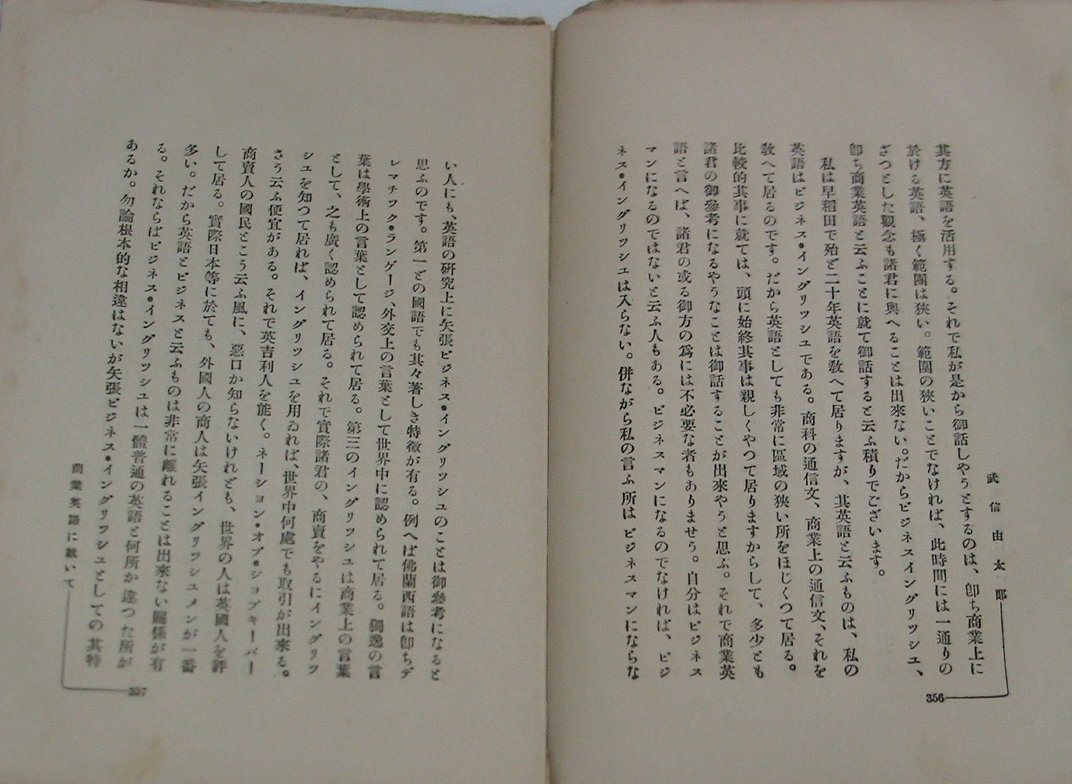 武信由太郎
356
其方に英語を活用する。それで私が是から御話しやうとするのは、卽ち商業上に
於ける英語、極く範圍は狹い。範圍の狹いことでなければ、此時間には一通りの
ざつとした觀念も諸君に與へることは出來ない。だからビジネスイングリツシユ、
卽ち商業英語と云ふことに就て御話すると云ふ積りでございます。
私は早稻田で殆ど二十年英語を敎へて居りますが、其英語と云ふものは、私の
英語はビジネス•イングリツシユである。商科の通信文、商業上の通信文、それを
敎へて居るのです。だから英語としても非常に區域の狹い所をほじくつて居る。
比較的其事に就ては、頭に始終其事は親しくやつて居りますからして、多少とも
諸君の御參考になるやうなことは御話することが出來やうと思ふ。それで商業英
語と言へば、諸君の或る御方の爲には不必要な者もありませう。自分はビジネス
マンになるのではないと云ふ人もある。ビジネスマンになるのでなければ、ビジ
ネス•イングリツシユは入らない。併ながら私の言ふ所はビジネスマンにならな
い人にも、英語の硏究上に矢張ビジネス•イングリツシユのことは御參考になると
思ふのです。第一どの國語でも其々著しき特徵が有る。例へば佛蘭西語は卽ちデ
レマチツク•ラングージ、外交上の言葉として世界中に認められて居る。獨逸の言
葉は學術上の言葉として認められて居る。第三のイングリツシユは商業上の言葉
として、之も廣く認められて居る。それで實際諸君の、商賣をやるにイングリツ
シユを知つて居れば、イングリツシユを用ゐれば、世界中何處でも取引が出來る。
さう云ふ便宜がある。それで英吉利人を能く。ネーシヨン•オブ•シヨプキーパー
商賣人の國民とこう云ふ風に、惡口か知らないけれども、世界の人は英國人を評
して居る。實際日本等に於ても、外國人の商人は矢張イングリツシユメンが一番
多い。だから英語とビジネスと云ふものは非常に離れることは出來ない關係が有
る。それならばビジネス•イングリツシユは一體普通の英語と何所か違つた所が
あるか。勿論根本的な相違はないが矢張ビジネス•イングリツシユとしての其特
商業英語に就いて
357